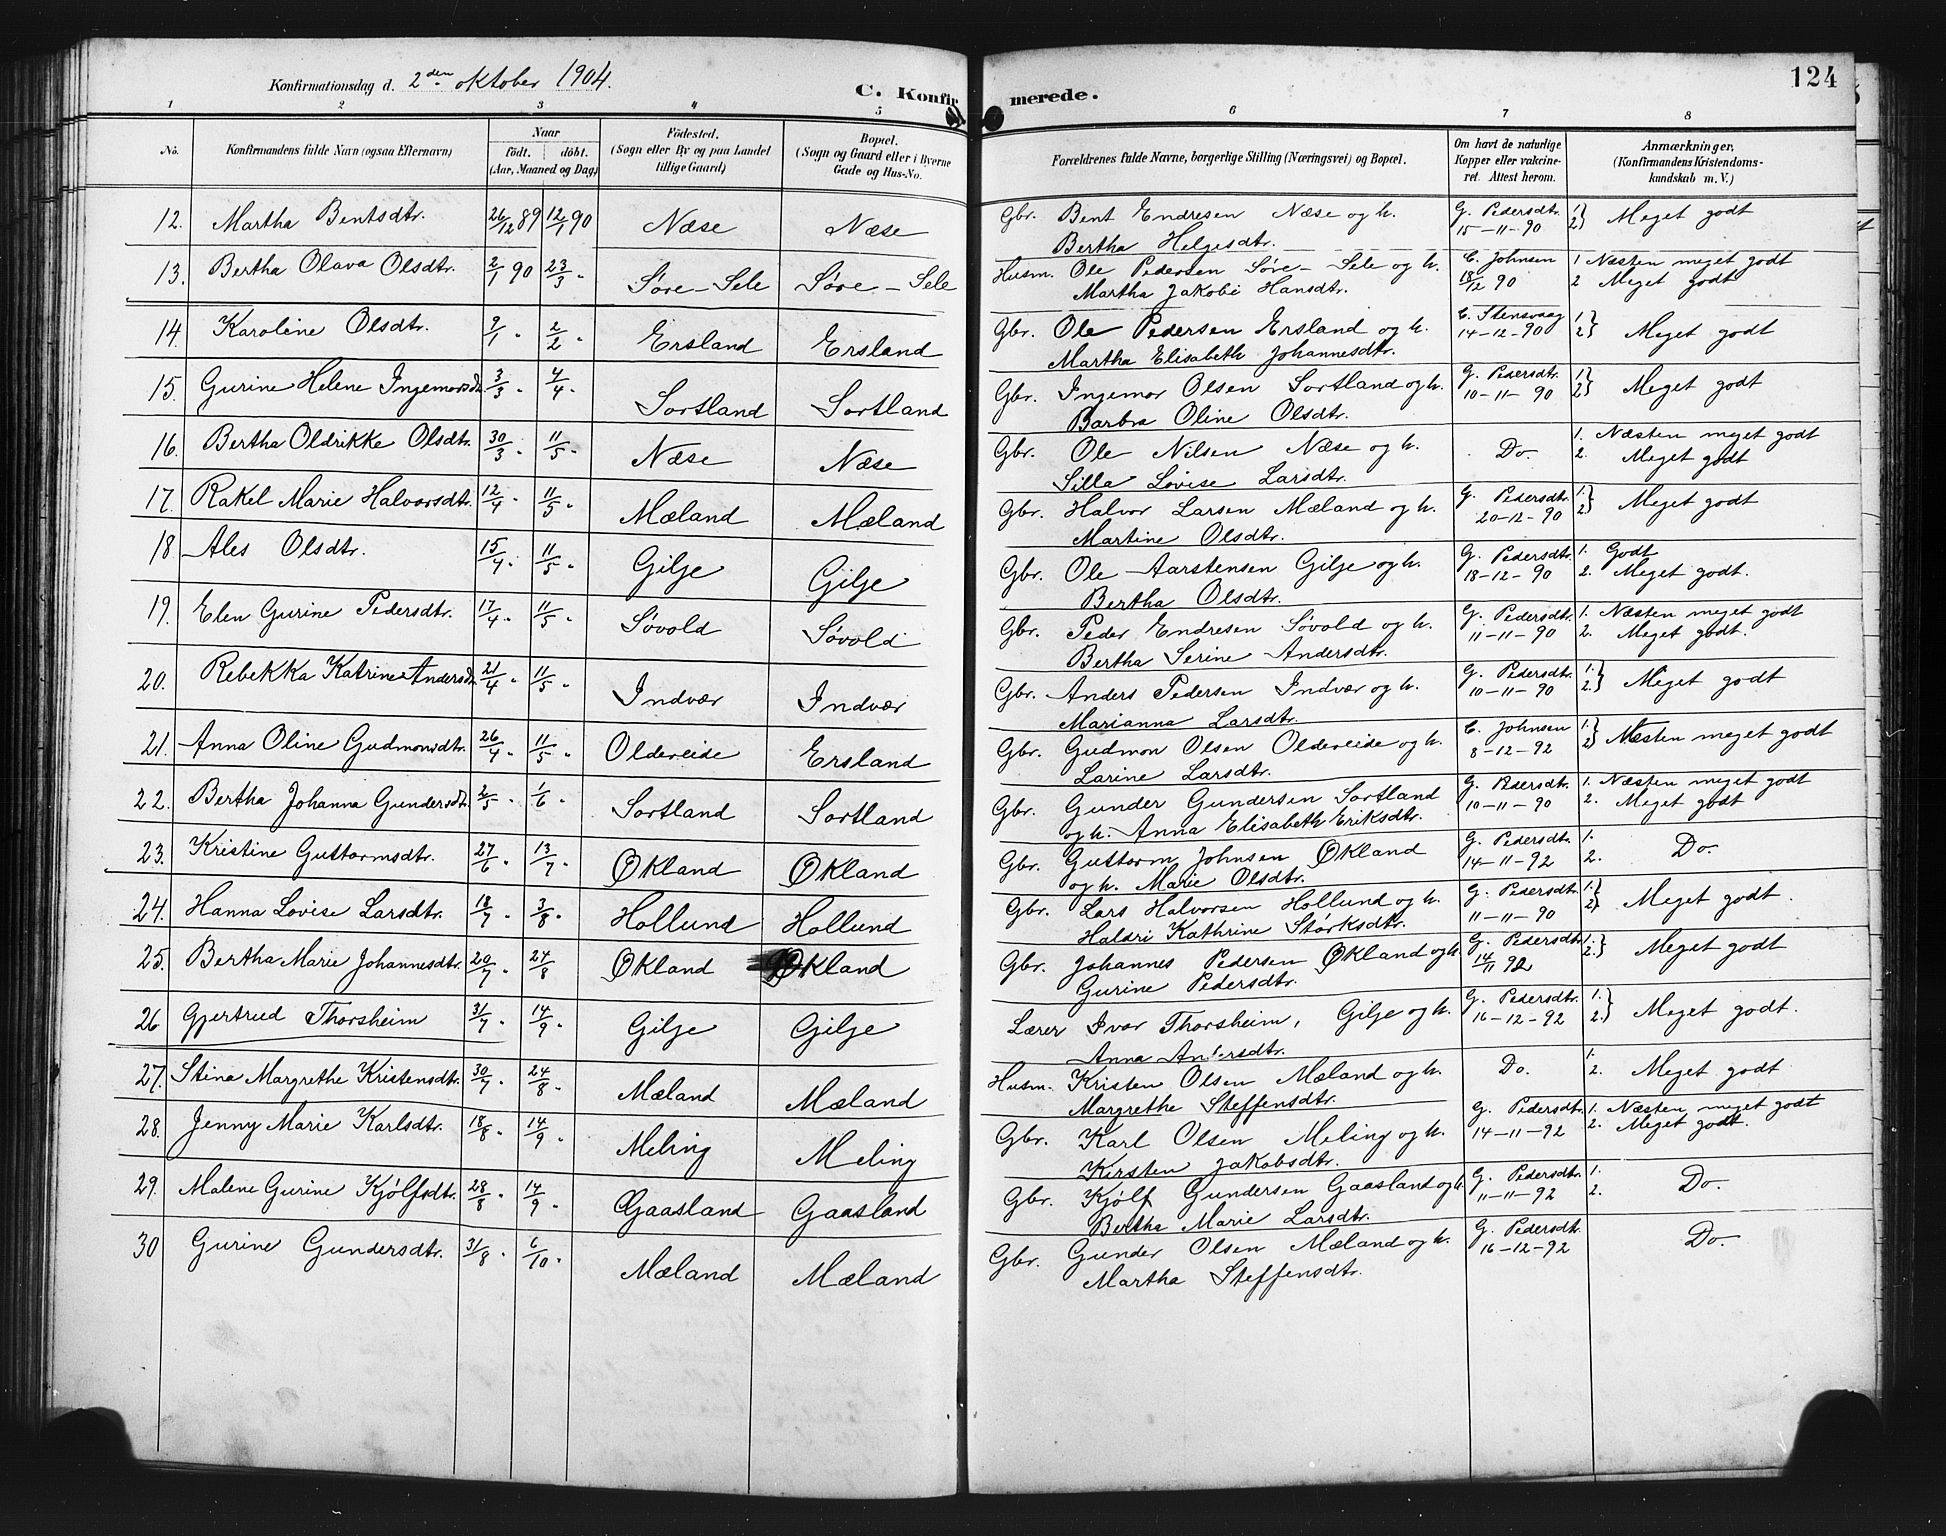 Konfirmationsdag d. 2den oktober 1904.
C. Konfirmerede.
124
1 2 3 4 5 6 7 8
No. | Konfirmandens fulde Navn (ogsaa Efternavn) | Naar födt. döbt. (Aar, Maaned og Dag) | Födested. (Sogn eller By og paa Landet tillige Gaard) | Bopæl. (Sogn og Gaard eller i Byerne Gade og Hus-No. | Forældrenes fulde Navne, borgerlige Stilling (Næringsvei) og Bopæl. | Om havt de naturlige Kopper eller vakcineret. Attest herom. | Anmærkninger, (Konfirmandens Kristendomskundskab m. V.)
12. Martha Bentsdtr. 26/12 89 12/1 90 Næse Næse Gbr. Bent Endresen Næse og h. G. Pedersdtr. 1 } Meget godt
Bertha Helgesdtr. 15-11-90 2 }
13. Bertha Olava Olsdtr. 2/1 90 23/3 " Søre-Sele Søre-Sele Husm. Ole Pedersen Søre-Sele og h. C. Johnsen 1 Næsten meget godt
Martha Jakobé Hansdtr. 18/12 90 2 Meget godt
14 Karoline Olsdtr. 9/1 " 2/2 " Ersland Ersland Gbr. Ole Pedersen Ersland og h. C. Stensvaag 1 } Meget godt
Martha Elisabeth Johannesdtr. 14-12-90 2 }
15. Gurine Helene Ingemorsdtr 3/3 " 4/4 " Sortland Sortland Gbr. Ingemor Olsen Sortland og h. G. Pedersdtr. 1 } Meget godt
Barbra Oline Olsdtr. 10-11-90 2 }
16. Bertha Oldrikke Olsdtr. 30/3 " 11/5 " Næse Næse Gbr. Ole Nilsen Næse og h. Do. 1. Næsten meget godt
Silla Lovise Larsdtr. 2. Meget godt
17. Rakel Marie Halvorsdtr. 12/4 " 11/5 " Mæland Mæland Gbr. Halvor Larsen Mæland og h. G. Pedersdtr. 1. } Meget godt
Martine Olsdtr. 20-12-90 2. }
18 Ales Olsdtr. 15/4 " 11/5 " Gilje Gilje Gbr. Ole Aarstensen Gilje og h. G. Pedersdtr. 1. Godt
Bertha Olsdtr. 18-12-90 2. Meget godt.
19. Elen Gurine Pedersdtr. 17/4 " 11/5 " Søvold Søvold Gbr. Peder Endresen Søvold og h. G. Pedersdtr. 1. Næsten meget godt
Bertha Serine Andersdtr. 11-11-90 2. Meget godt.
20. Rebekka Katrine Andersdtr 21/4 " 11/5 " Indvær Indvær Gbr. Anders Pedersen Indvær og h. G. Pedersdtr. 1. } Meget godt
Marianna Larsdtr. 10-11-90 2. }
21. Anna Oline Gudmonsdtr. 26/4 " 11/5 " Oldereide Ersland Gbr. Gudmon Olsen Oldereide og h. C. Johnsen 1. } Næsten meget godt
Larine Larsdtr. 8-12-92 2 }
22. Bertha Johanna Gundersdtr. 2/5 " 1/6 " Sortland Sortland Gbr. Gunder Gundersen Sortland G. Pedersdtr. 1. Næsten meget godt
og h. Anna Elisabeth Eriksdtr. 10-11-90 2. Meget godt
23. Kristine Guttormsdtr. 27/6 " 13/7 " Økland Økland Gbr. Guttorm Johnsen Økland G. Pedersdtr. 1. Do.
og h. Marie Olsdtr. 14-11-92 2.
24. Hanna Lovise Larsdtr. 18/7 " 3/8 " Hollund Hollund Gbr. Lars Halvorsen Hollund og h. G. Pedersdtr. 1. } Meget godt.
Haldri Kathrine Størksdtr. 11-11-90 2 }
25. Bertha Marie Johannesdtr. 20/7 " 24/8 Økland Økland Gbr. Johannes Pedersen Økland og h. G. Pedersdtr 1. } Meget godt
Gurine Pedersdtr. 14/11 92 2. }
26 Gjertrud Thorsheim 31/7 " 14/9 " Gilje Gilje Lærer Ivar Thorsheim, Gilje og h. G. Pedersdtr. 1. } Meget godt.
Anna Andersdtr. 16-12-92 2. }
27. Stina Margrethe Kristensdtr. 30/7 " 24/8 " Mæland Mæland Husm. Kristen Olsen Mæland og h. Do. 1. Meget godt
Margrethe Steffensdtr. 2.
28. Jenny Marie Karlsdtr. 18/8 " 14/9 " Meling Meling Gbr. Karl Olsen Meling og h. G. Pedersdtr. 1. Næsten meget godt
Kirsten Jakobsdtr. 14-11-92 2. Meget godt.
29. Malene Gurine Kjølfsdtr. 28/8 " 14/9 " Gaasland Gaasland Gbr. Kjølf Gundersen Gaasland og h. G. Pedersdtr. 1. Do.
Bertha Marie Larsdtr. 11-11-92 2.
30 Gurine Gundersdtr. 31/8 " 6/10 " Mæland Mæland Gbr. Gunder Olsen Mæland og h. G. Pedersdtr. Do.
Martha Steffensdtr. 16-12-92